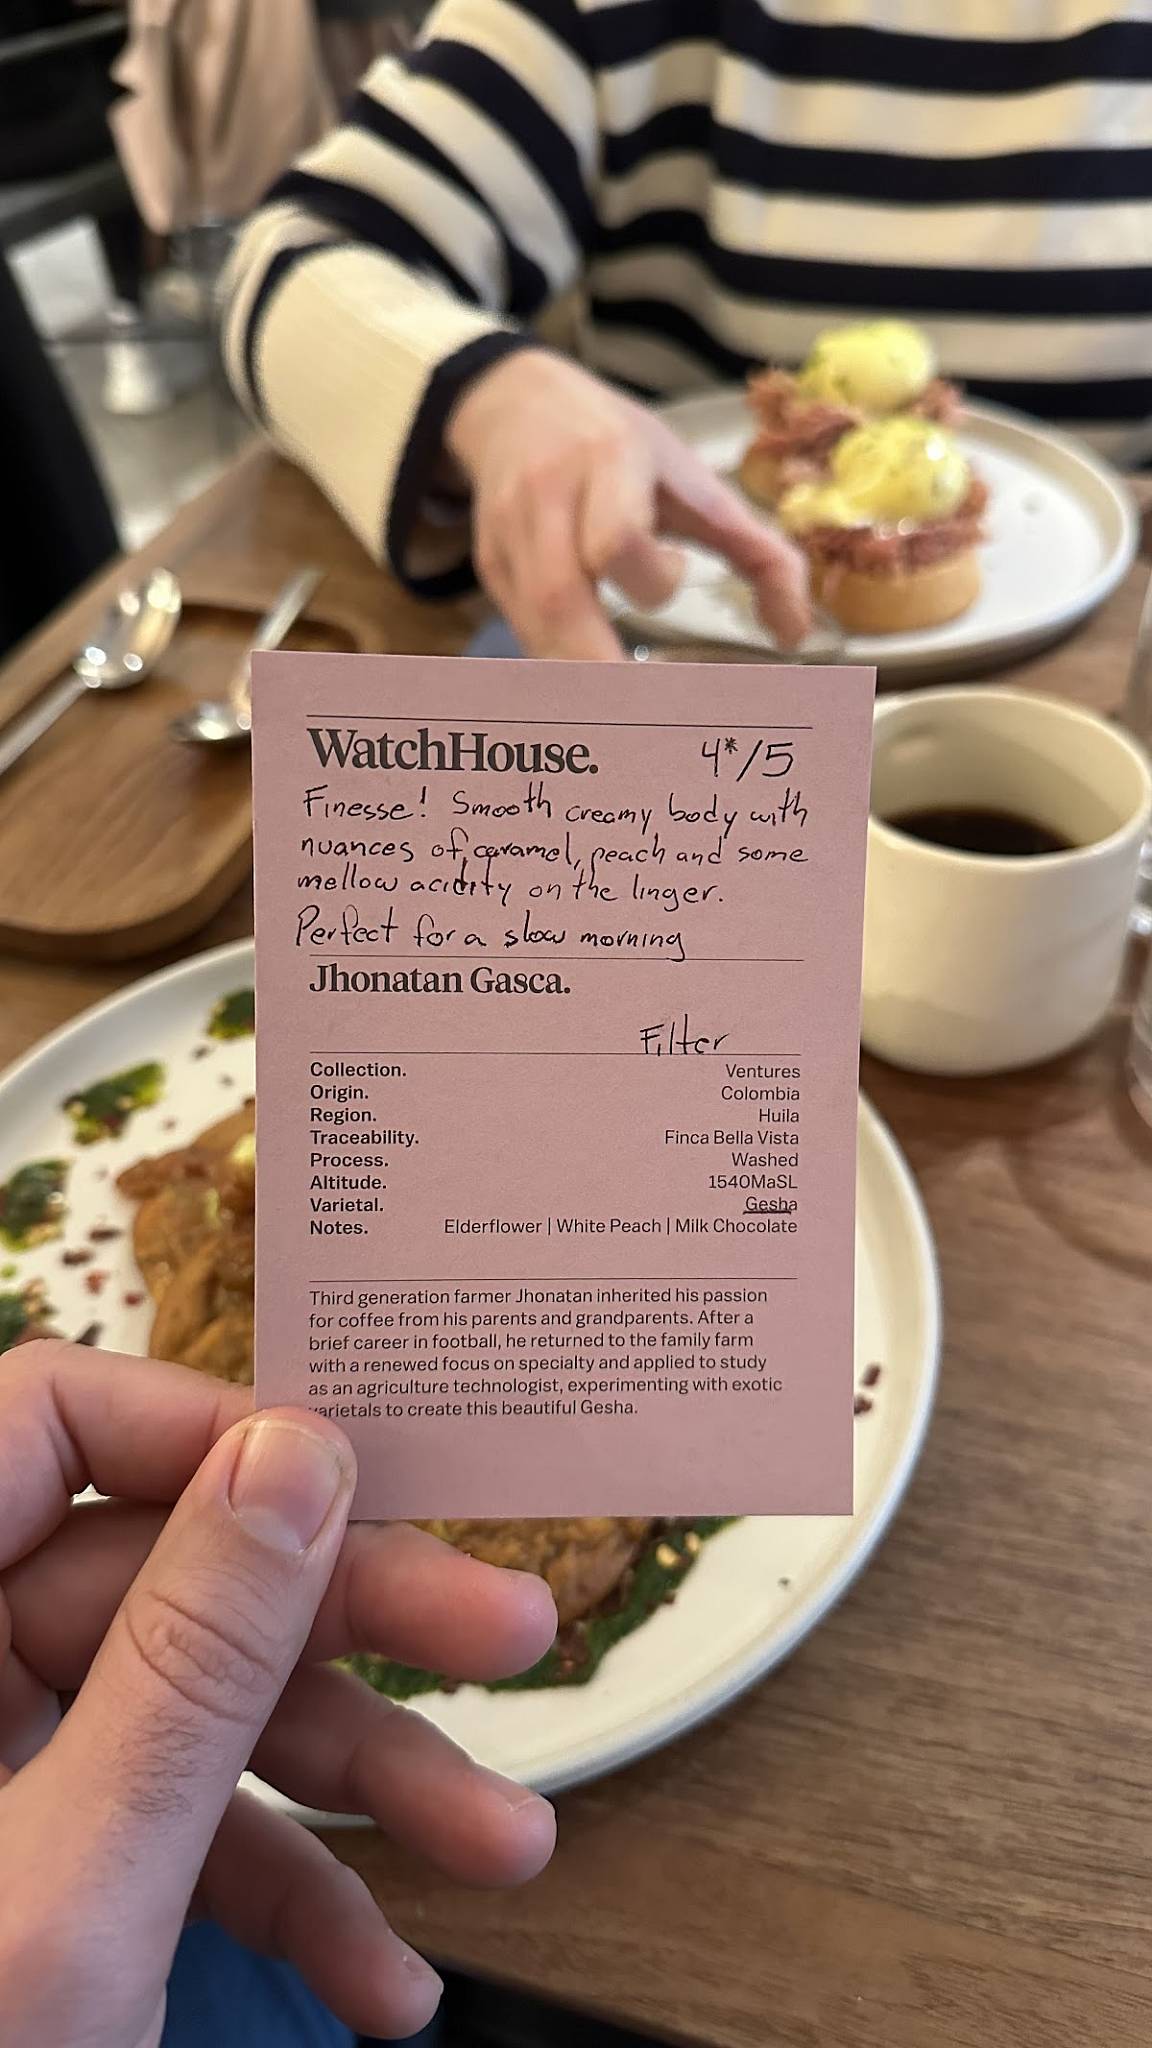 WatchHouse. 4*/5
Finesse! Smooth creamy body with
nuances of caramel, peach and some
mellow acidity on the linger.
Perfect for a slow morning
Jhonatan Gasca.
Filter
Collection. Ventures
Origin. Colombia
Region. Huila
Traceability. Finca Bella Vista
Process. Washed
Altitude. 1540MaSL
Varietal. Gesha
Notes. Elderflower | White Peach | Milk Chocolate
Third generation farmer Jhonatan inherited his passion
for coffee from his parents and grandparents. After a
brief career in football, he returned to the family farm
with a renewed focus on specialty and applied to study
as an agriculture technologist, experimenting with exotic
varietals to create this beautiful Gesha.